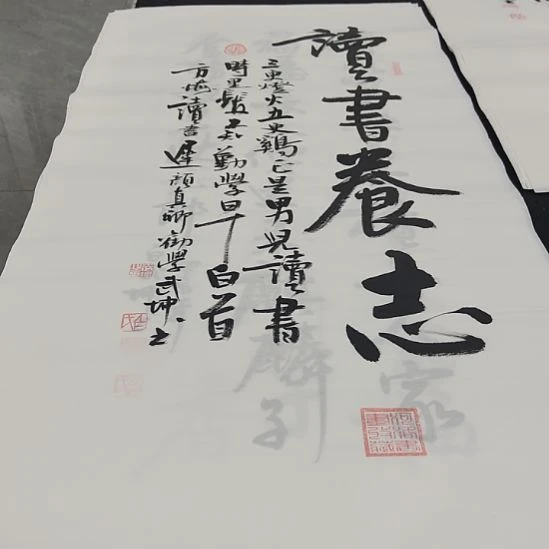 讀書養志
三更燈火五更鷄正是男兒讀書
時黑髮不知勤學早白首
方悔讀書遲顏真卿勸學武坤书